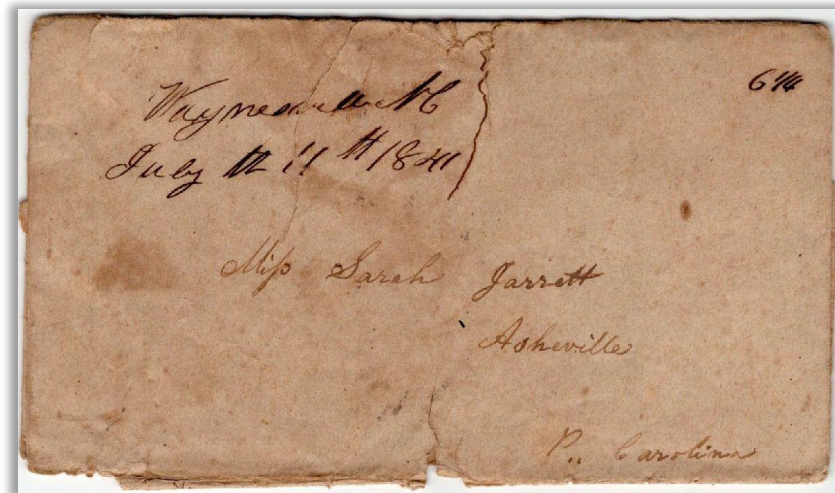 Waynesville NC
6 1/4
July th 11th 1841
Miss Sarah Jarrett
Asheville
N.. Carolina